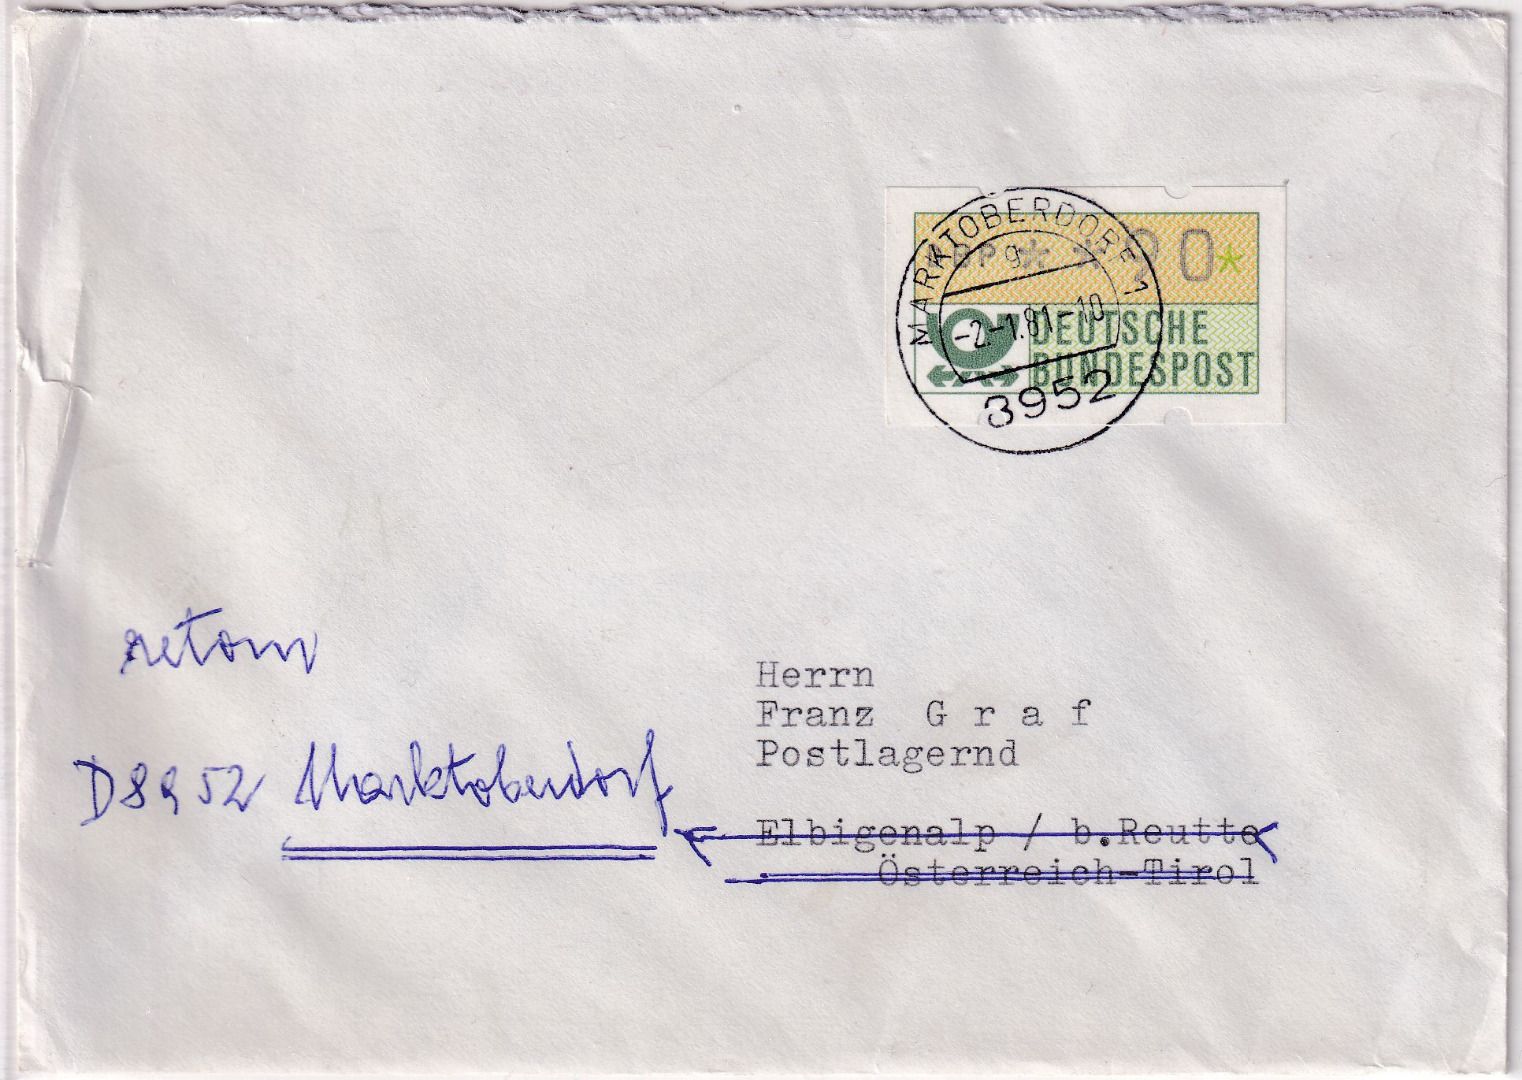 MARKTOBERDORF 1
g
-2.-1.81-10
3952
DBP * *90*
DEUTSCHE
BUNDESPOST
retour
D8952 Marktoberdorf
Herrn
Franz G r a f
Postlagernd
Elbigenalp / b.Reutte
Österreich-Tirol